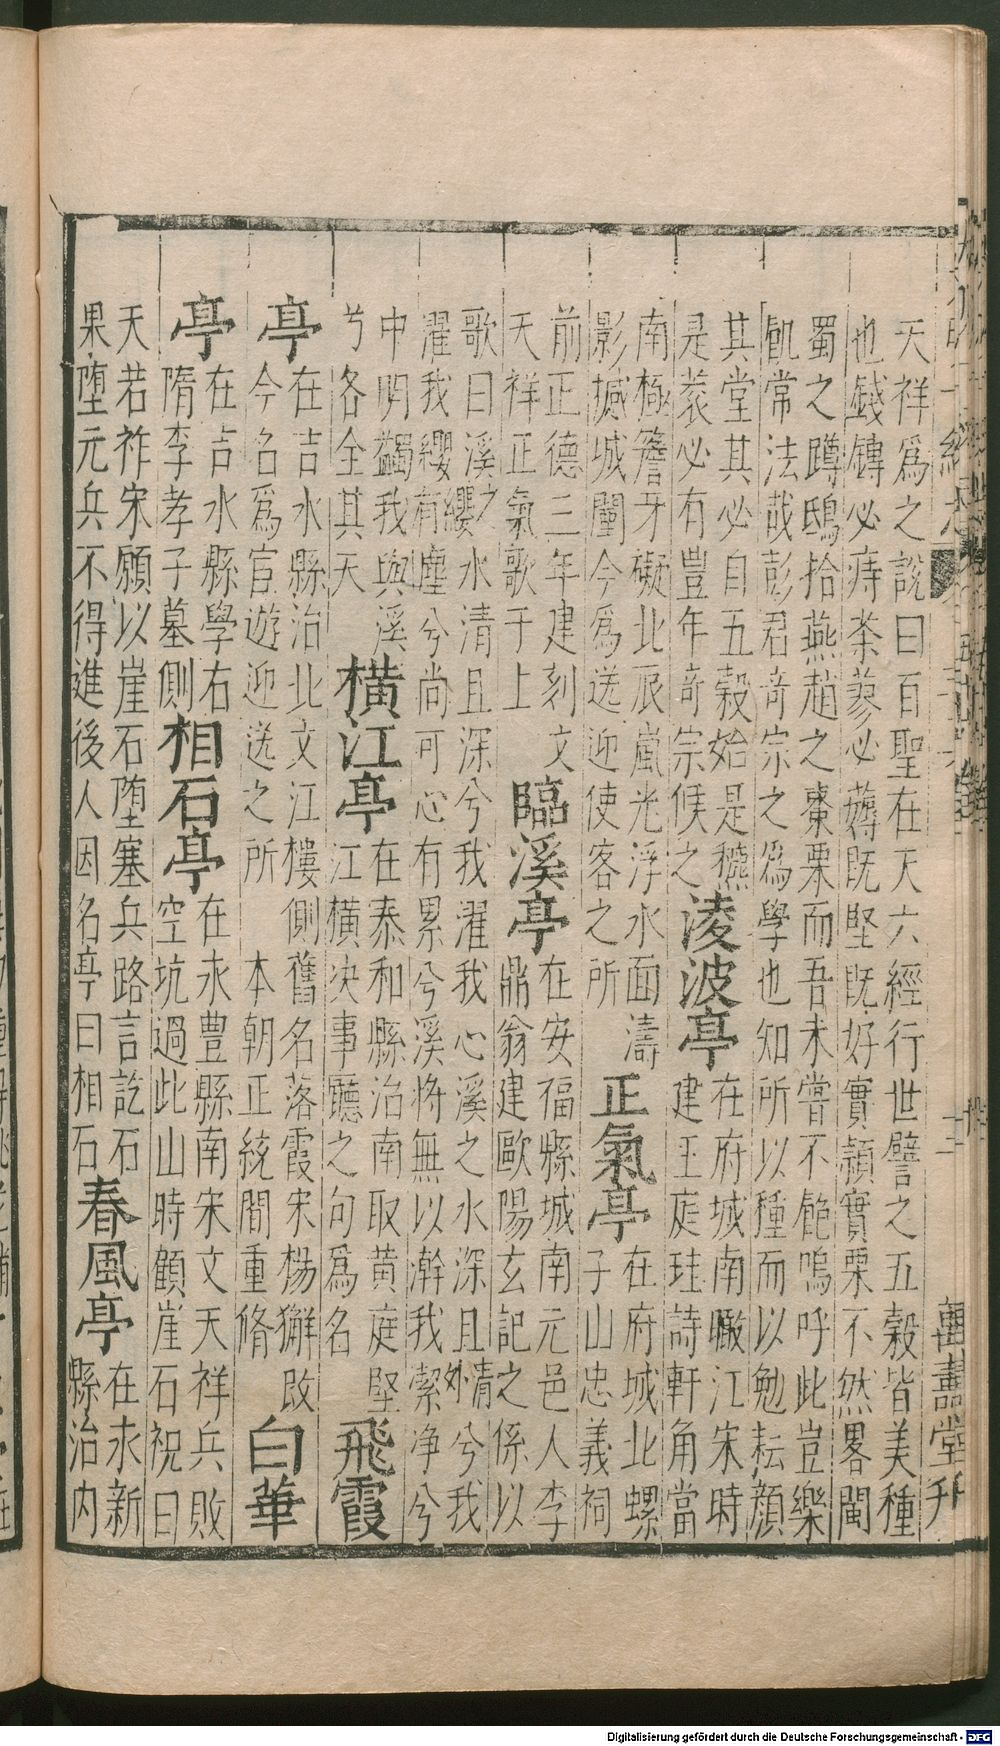 天祥爲之說曰百聖在天六經行世譬之五穀皆美種
也錢鎛必痔荼蓼必薅既堅既好實穎實栗不然畧閩
蜀之蹲鴟拾燕趙之棗栗而吾未嘗不飽嗚呼此豈樂
飢常法哉彭君竒宗之爲學也知所以種而以勉耘顔
其堂其必自五穀始是穮
是蔉必有豊年竒宗候之
淩波亭
在府城南瞰江宋時
建王庭珪詩軒角當
南極簷牙礙北辰嵐光浮水面濤
影撼城闉今爲送迎使客之所
正氣亭
在府城北螺
子山忠義祠
前正德三年建刻文
天祥正氣歌于上
臨溪亭
在安福縣城南元邑人李
鼎翁建歐陽玄記之係以
歌曰溪之水清且深兮我濯我心溪之水深且清兮我
濯我纓有塵兮尚可心有累兮溪將無以澣我潔净兮
中明蠲我與溪
兮各全其天
橫江亭
在泰和縣治南取黄庭堅
江橫决事聽之句爲名
飛霞
亭
在吉水縣治北文江樓側舊名落霞宋楊獬改
今名爲官遊迎送之所 本朝正統間重脩
白華
亭
在吉水縣學右
隋李孝子墓側
相石亭
在永豊縣南宋文天祥兵敗
空坑過此山時顧崖石祝曰
天若祚宋願以崖石堕塞兵路言訖石
果堕元兵不得進後人因名亭曰相石
春風亭
在永新
縣治内
Digitalisierung gefördert durch die Deutsche Forschungsgemeinschaft - DFG